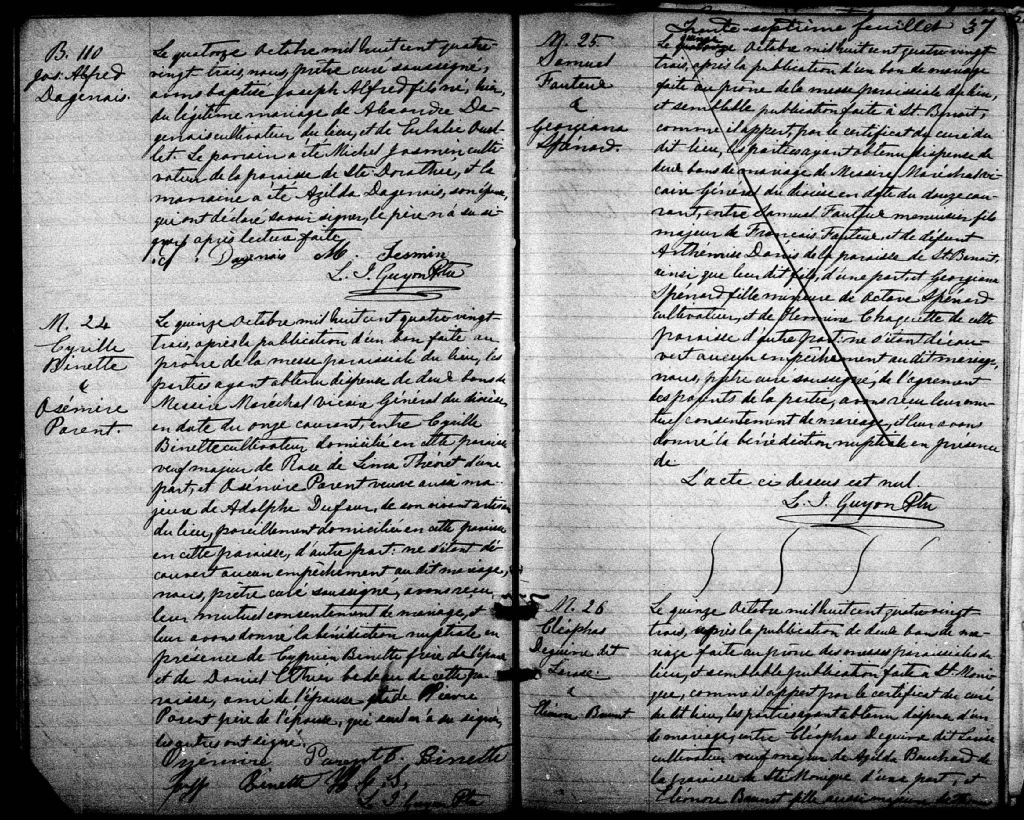 B. 110
Jos. Alfred
Dagenais.
Le quatorze Octobre mil huit cent quatre-
vingt trois, nous, prêtre curé soussigné,
avons baptisé Joseph Alfred fils né, hier,
du légitime mariage de Alexandre Da-
genais cultivateur du lieu, et de Eulalie Ouel-
let. Le parrain a été Michel Jasmin culti-
vateur de la paroisse de Ste Dorothée, et la
marraine a été Azilda Dagenais, son épouse,
qui ont déclaré savoir signer, le père n'a su si-
gner après lecture faite
Dagenais M. Jesmin
L. J. Guyon Ptre
M. 24
Cyrille
Binette
&
Osémire
Parent.
Le quinze Octobre mil huit cent quatre vingt
trois, après la publication d'un ban faite au
prône de la messe paroissiale du lieu, les
parties ayant obtenu dispense de deux bans de
Messire Maréchal vicaire Général du diocèse
en date du onze courant, entre Cyrille
Binette cultivateur domicilié en cette paroisse
veuf majeur de Rose de Lima Théoret d'une
part, et Osémire Parent veuve aussi ma-
jeure de Adolphe Dufour, de son vivant artisan
du lieu, pareillement domiciliée en cette paroisse
en cette paroisse, d'autre part: ne s'étant dé-
couvert aucun empêchement au dit mariage,
nous, prêtre curé soussigné, avons reçu
leur mutuel consentement de mariage, et
leur avons donné la bénédiction nuptiale en
présence de Cyprien Binette frère de l'époux
et de Daniel Ethier bedeau de cette pa-
roisse, ami de l'épouse et de Pierre
Parent père de l'épouse, qui seul n'a su signer,
les autres ont signé.
Ozemire Parent C. Binette
Binette
L. J. Guyon Ptre
Trente-septième feuillet 37
M. 25
Samuel
Fauteux
&
Georgiana
Spénard.
quinze
Le quatorze Octobre mil huit cent quatre vingt
trois, après la publication d'un ban de mariage
faite au prône de la messe paroissiale du lieu,
et semblable publication faite à St. Benoit,
comme il appert, par le certificat du curé du
dit lieu, les parties ayant obtenu dispense de
deux bans de mariage de Messire Maréchal vi-
caire Général du diocèse en date du douze cou-
rant, entre Samuel Fauteux menuisier fils
majeur de François Fauteux et de défunt
Arthémise Danis de la paroisse de St. Benoit,
ainsi que leur dit fils, d'une part, et Georgiana
Spénard fille mineure de Octave Spénard
cultivateur, et de Hermine Choquette de cette
paroisse d'autre part: ne s'étant décou-
vert aucun empêchement au dit mariage,
nous, prêtre curé soussigné, de l'agrément
des parents de la partie, avons reçu leur mu-
tuel consentement de mariage, et leur avons
donné la bénédiction nuptiale en présence
de
L'acte ci dessus est nul.
L. J. Guyon Ptre
M. 26
Cléophas
Deguire dit
Larose
&
Eléonore Brunet
Le quinze Octobre mil huit cent quatre vingt
trois, après la publication de deux bans de ma-
riage faite au prône des messes paroissiales du
lieu, et semblable publication faite à Ste. Moni-
que, comme il appert par le certificat du curé
du dit lieu, les parties ayant obtenu dispense d'un
de mariage, entre Cléophas Deguire dit Larose
cultivateur veuf majeur de Azilda Bouchard de
la paroisse de Ste Monique d'une part, et
Eléonore Brunet fille aussi majeure de